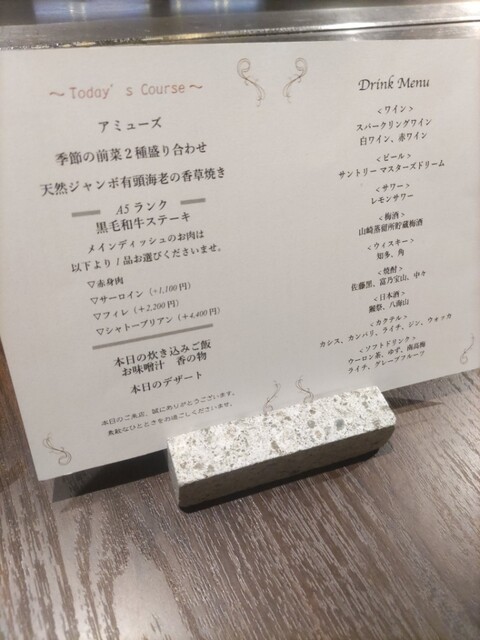 ～Today's Course～
アミューズ
季節の前菜２種盛り合わせ
天然ジャンボ有頭海老の香草焼き
A5 ランク
黒毛和牛ステーキ
メインディッシュのお肉は
以下より 1 品お選びくださいませ。
▽赤身肉
▽サーロイン（+1,100円）
▽フィレ（＋2,200円）
▽シャトーブリアン（＋4,400円）
本日の炊き込みご飯
お味噌汁　香の物
本日のデザート
本日のご来店、誠にありがとうございます。
素敵なひとときをお過ごしくださいませ。
Drink Menu
＜ワイン＞
スパークリングワイン
白ワイン、赤ワイン
＜ビール＞
サントリー マスターズドリーム
＜サワー＞
レモンサワー
＜梅酒＞
山崎蒸留所貯蔵梅酒
＜ウィスキー＞
知多、角
＜焼酎＞
佐藤黒、富乃宝山、中々
＜日本酒＞
獺祭、八海山
＜カクテル＞
カシス、カンパリ、ライチ、ジン、ウォッカ
＜ソフトドリンク＞
ウーロン茶、ゆず、南高梅
ライチ、グレープフルーツ